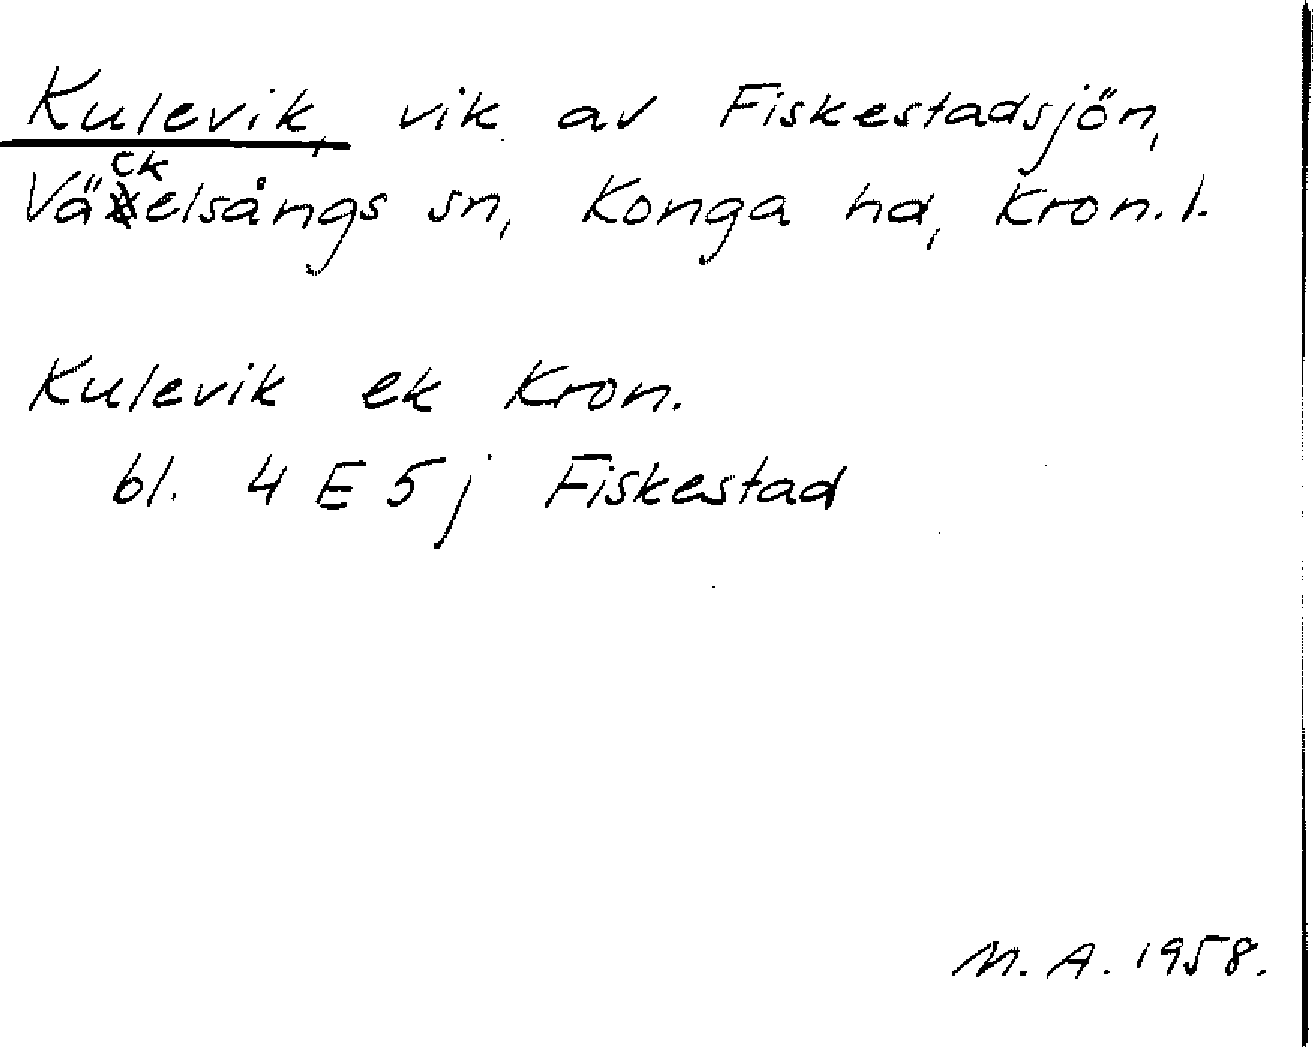 Kulevik, vik av Fiskestadsjön,
Väckelsångs sn, Konga hd, Kron. l.
Kulevik ek Kron.
bl. 4 E 5 j Fiskestad
M. A. 1958.